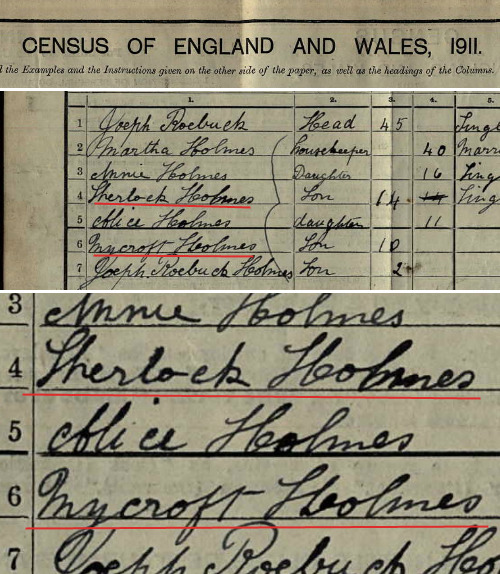 CENSUS OF ENGLAND AND WALES, 1911.
d the Examples and the Instructions given on the other side of the paper, as well as the headings of the Columns.
1. 2. 3. 4. 5.
1 Joseph Roebuck Head 45 Singl
2 Martha Holmes housekeeper 40 Marri
3 Annie Holmes Daughter 16 Sing
4 Sherlock Holmes Son 14 Sing
5 Alice Holmes daughter 11
6 Mycroft Holmes Son 10
7 Joseph Roebuck Holmes Son 2
3 Annie Holmes
4 Sherlock Holmes
5 Alice Holmes
6 Mycroft Holmes
7 Joseph Roebuck Ho